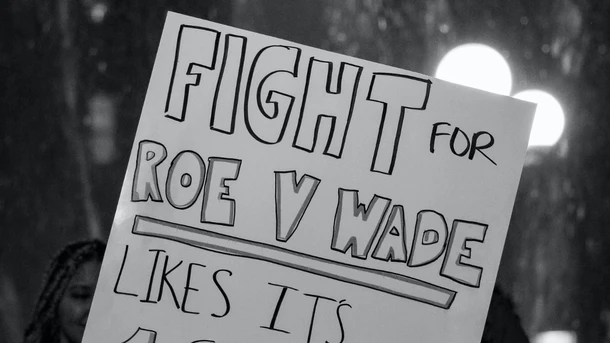 FIGHT FOR
ROE V WADE
LIKES IT'S